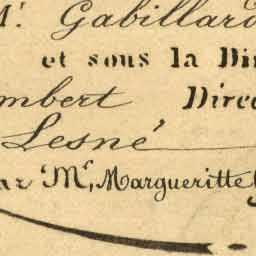 Mr. Gabillard
et sous la Dir
mbert Direc
Lesné
ar Mr, Margueritte